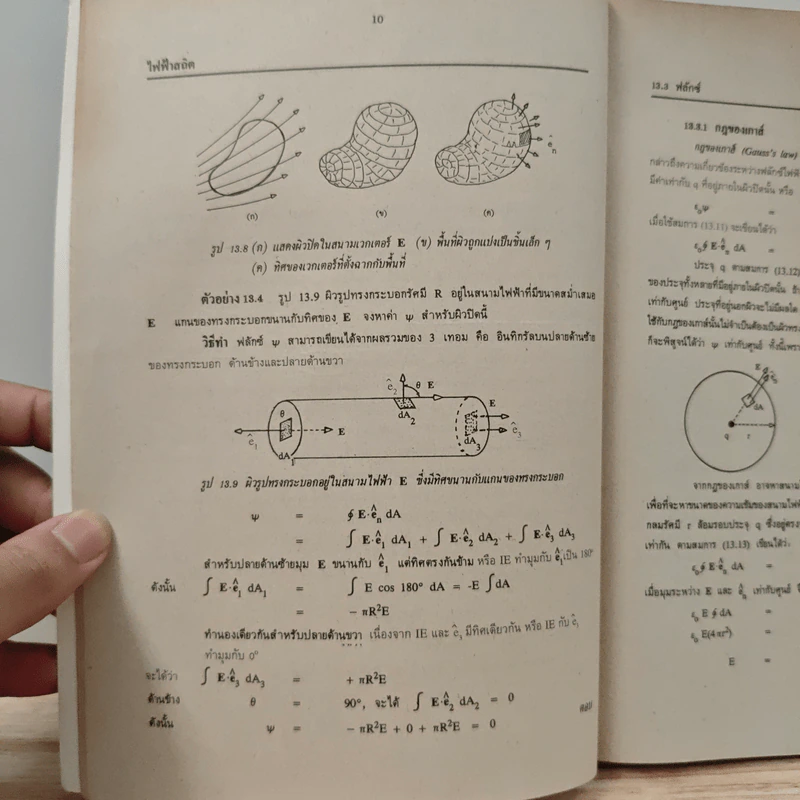 10
ไฟฟ้าสถิต
ê
n
ΔA
(ก)
(ข)
(ค)
รูป 13.8 (ก) แสดงผิวปิดในสนามเวกเตอร์ E (ข) พื้นที่ผิวถูกแบ่งเป็นชิ้นเล็ก ๆ
(ค) ทิศของเวกเตอร์ที่ตั้งฉากกับพื้นที่
ตัวอย่าง 13.4 รูป 13.9 ผิวรูปทรงกระบอกรัศมี R อยู่ในสนามไฟฟ้าที่มีขนาดสม่ำเสมอ
E แกนของทรงกระบอกขนานกับทิศของ E จงหาค่า ψ สำหรับผิวปิดนี้
วิธีทำ ฟลักซ์ ψ สามารถเขียนได้จากผลรวมของ 3 เทอม คือ อินทิกรัลบนปลายด้านซ้าย
ของทรงกระบอก ด้านข้างและปลายด้านขวา
ê₂ θ E
θ dA₂ E
ê₁ E dA₃ ê₃
dA₁
รูป 13.9 ผิวรูปทรงกระบอกอยู่ในสนามไฟฟ้า E ซึ่งมีทิศขนานกับแกนของทรงกระบอก
ψ = ∮ E·êₙ dA
= ∫ E·ê₁ dA₁ + ∫ E·ê₂ dA₂ + ∫ E·ê₃ dA₃
สำหรับปลายด้านซ้ายมุม E ขนานกับ ê₁ แต่ทิศตรงกันข้าม หรือ IE ทำมุมกับ ê₁ เป็น 180°
ดังนั้น ∫ E·ê₁ dA₁ = ∫ E cos 180° dA = -E ∫dA
= - πR²E
ทำนองเดียวกันสำหรับปลายด้านขวา เนื่องจาก IE และ ê₃ มีทิศเดียวกัน หรือ IE กับ ê₃
ทำมุมกับ 0°
จะได้ว่า ∫ E·ê₃ dA₃ = + πR²E
ด้านข้าง θ = 90°, จะได้ ∫ E·ê₂ dA₂ = 0
ดังนั้น ψ = - πR²E + 0 + πR²E = 0
ตอบ
13.3 ฟลักซ์
13.3.1 กฎของเกาส์
กฎของเกาส์ (Gauss's law)
กล่าวถึงความเกี่ยวข้องระหว่างฟลักซ์ไฟฟ้
มีค่าเท่ากับ q ที่อยู่ภายในผิวปิดนั้น หรือ
ε₀ψ =
เมื่อใช้สมการ (13.11) จะเขียนได้ว่า
ε₀∮ E·êₙ dA =
ประจุ q ตามสมการ (13.12)
ของประจุทั้งหลายที่มีอยู่ภายในผิวปิดนั้น
เท่ากับศูนย์ ประจุที่อยู่นอกผิวจะไม่มีผลใด
ใช้กับกฎของเกาส์นั้นไม่จำเป็นต้องเป็นผิวทรง
ก็จะพิสูจน์ได้ว่า ψ เท่ากับศูนย์ ทั้งนี้เพรา
E
dA
q r
จากกฎของเกาส์ อาจหาสนาม
เพื่อที่จะหาขนาดของความเข้มของสนามไฟฟ้
กลมรัศมี r ล้อมรอบประจุ q ซึ่งอยู่ตรง
เท่ากัน ตามสมการ (13.13) เขียนได้ว่า
ε₀∮ E·êₙ dA =
เมื่อมุมระหว่าง E และ êₙ เท่ากับศูนย์
ε₀ E ∮ dA =
ε₀ E(4πr²) =
E =